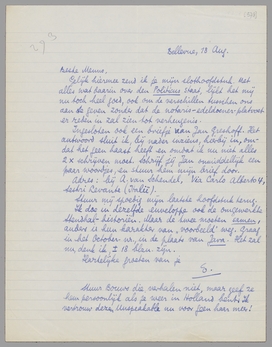 Bellevue, 18 Aug.
Beste Menno,
Gelijk hiermee zend ik je mijn slothoofdstuk. Met
alles wat daarin over den Politicus staat, lijkt het mij
nu toch heel goed, ook om de verschillen tusschen ons
aan te geven zonder dat de notaris-edeldonner-platvoet
er reden in zal zien tot verheugenis.
Ingesloten ook een briefje van Jan Greshoff. Het
antwoord sluit ik, bij nader inzien, hierbij in, om-
dat het een haast heeft en omdat ik nu niet alles
2 x schrijven moet. Schrijf bij Jan onmiddellijk een
paar woordjes, en stuur hem mijn brief door.
Adres: bij A. van Schendel, Via Carlo Alberto 4,
Sestri Levante (Italië).
Stuur mij spoedig mijn laatste hoofdstuk terug.
Ik doe in dezelfde enveloppe ook de omgewerkte
Stendhal-historiën. Maar de twee moeten samen,
anders is hun karakter van "voorbeeld" weg. Graag
in het October-nr, in de plaats van Java. Het zal
nu denk ik, ± 18 blzn. zijn.
Hartelijke groeten van je
E.
Stuur Bouws die verhalen niet, maar geef ze
hem persoonlijk als je weer in Holland bent. Ik
vertrouw dien
voor geen haar meer!